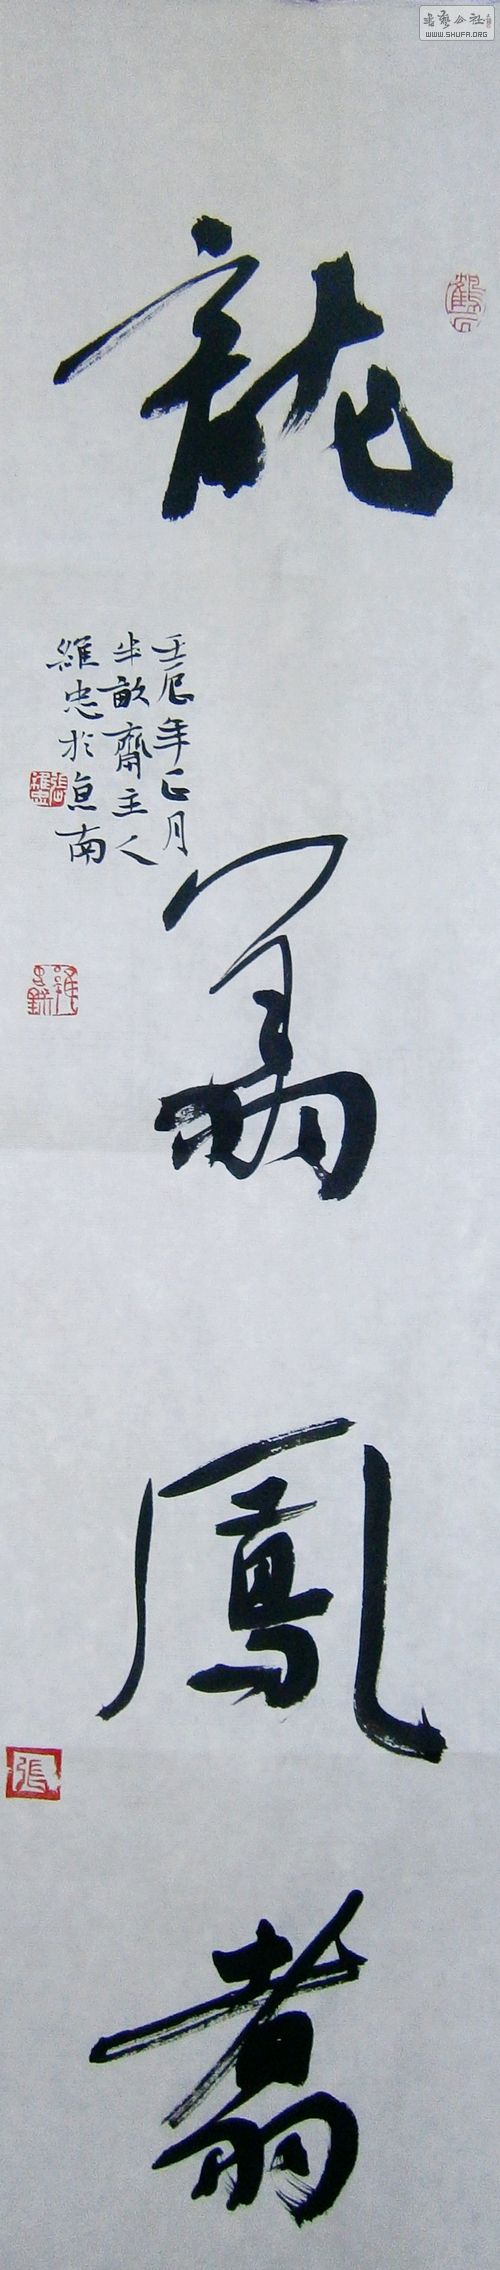 龍騫鳳翥
壬辰年正月
半畝齋主人
維忠於京南
張
書藝公社
WWW.SHUFA.ORG